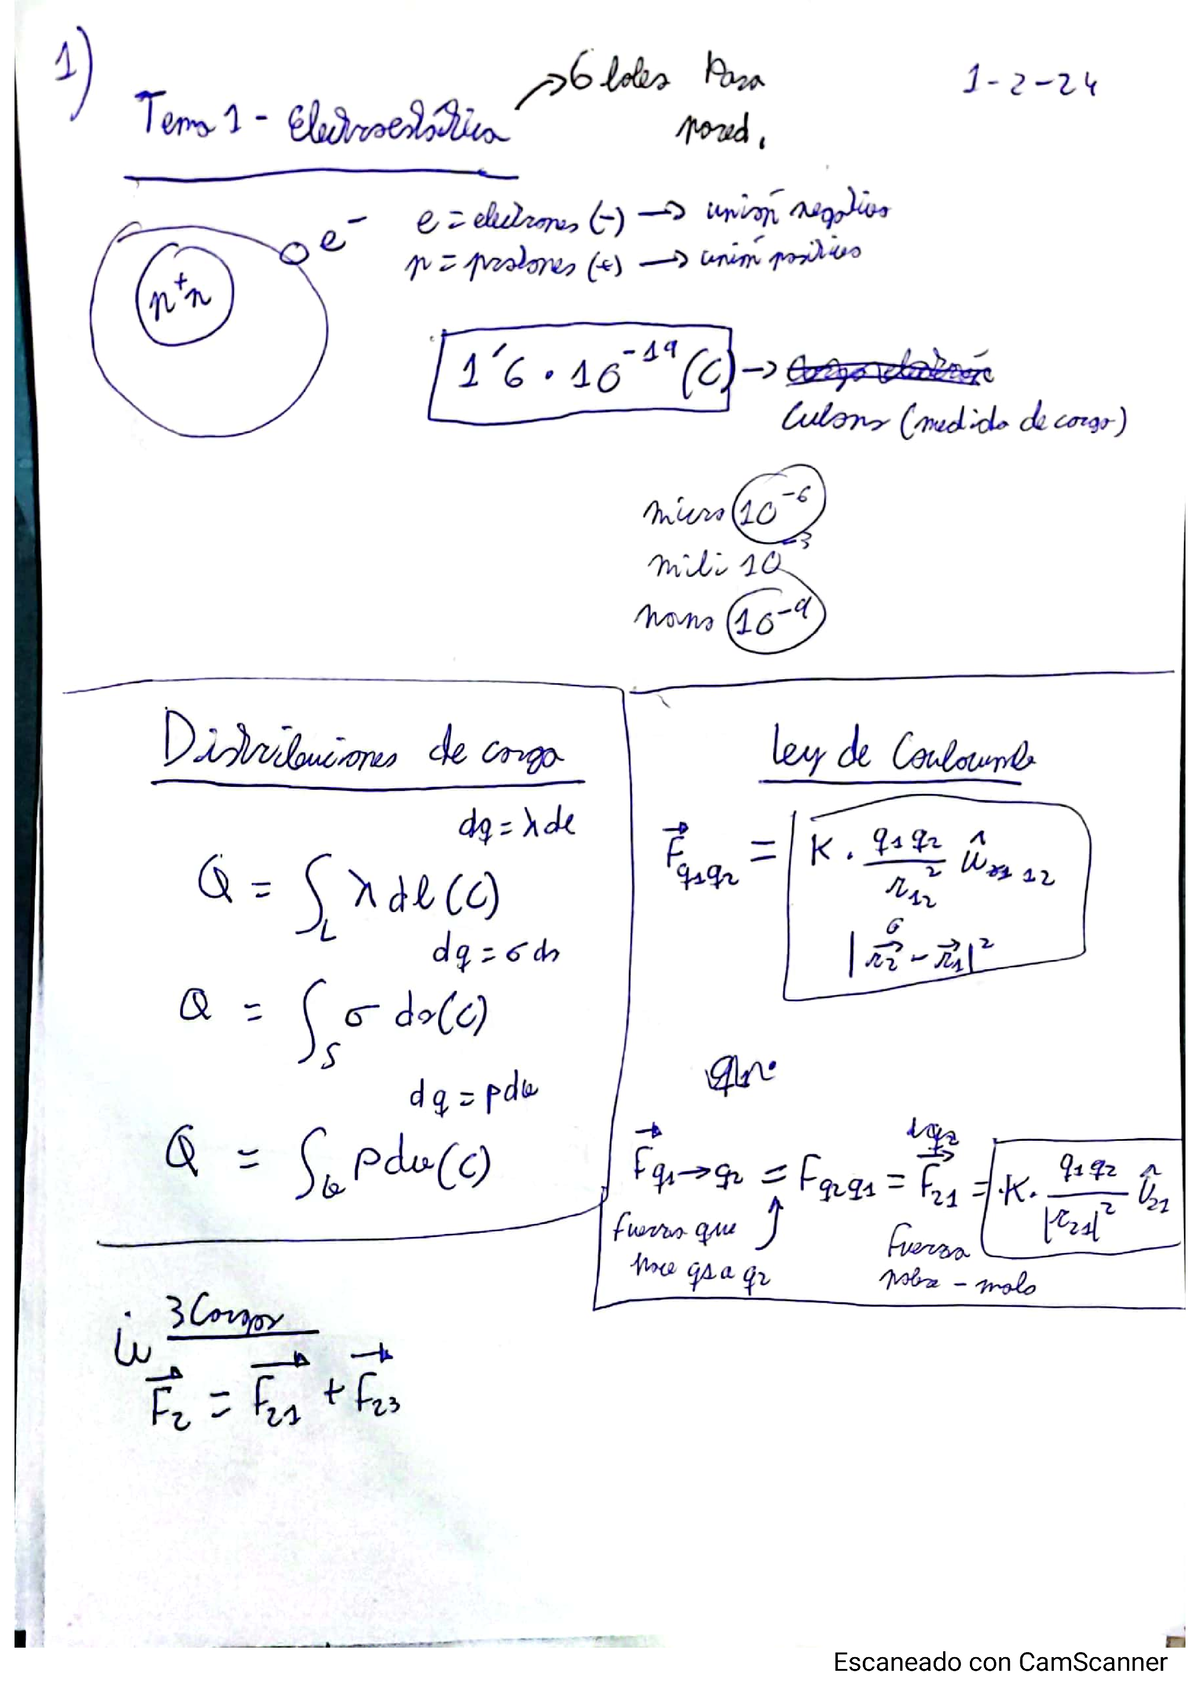 1)
Tema 1 - Electroestática
→ 6 Para
1-2-24
e⁻
p⁺n
e = electrones (-) → unión negativo
p = protones (+) → unión positivo
1'6 · 10⁻¹⁹ (C) →
Culons (medida de carga)
micro 10⁻⁶
mili 10⁻³
nano 10⁻⁹
Distribuciones de carga
dq = λdl
Q = ∫_L λ dl (C)
dq = σ ds
Q = ∫_S σ ds (C)
dq = ρdv
Q = ∫_v ρ dv (C)
Ley de Couloumb
F⃗_q1q2 = K · q1 q2 / r12² û 12
|r⃗2 - r⃗1|²
F⃗ q1→q2 = F q2q1 = F⃗21 = K · q1 q2 / |r21|² û21
fuerza que
hace q1 a q2
Fuerza
sobre - malo
3 Cargas
F⃗2 = F⃗21 + F⃗23
Escaneado con CamScanner